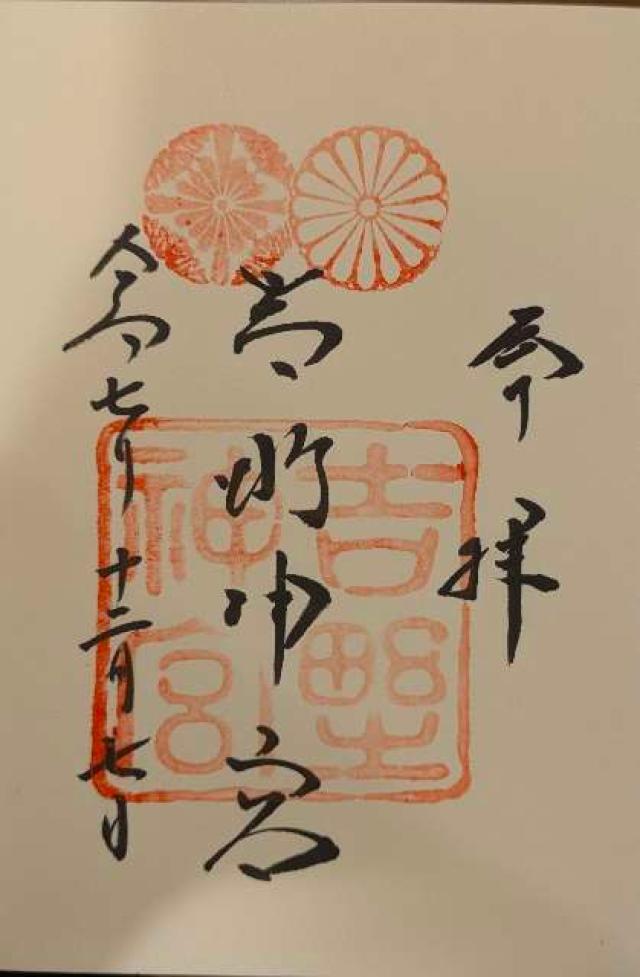 奉拝
吉野神宮
令和七年十二月七日
吉野
神宮